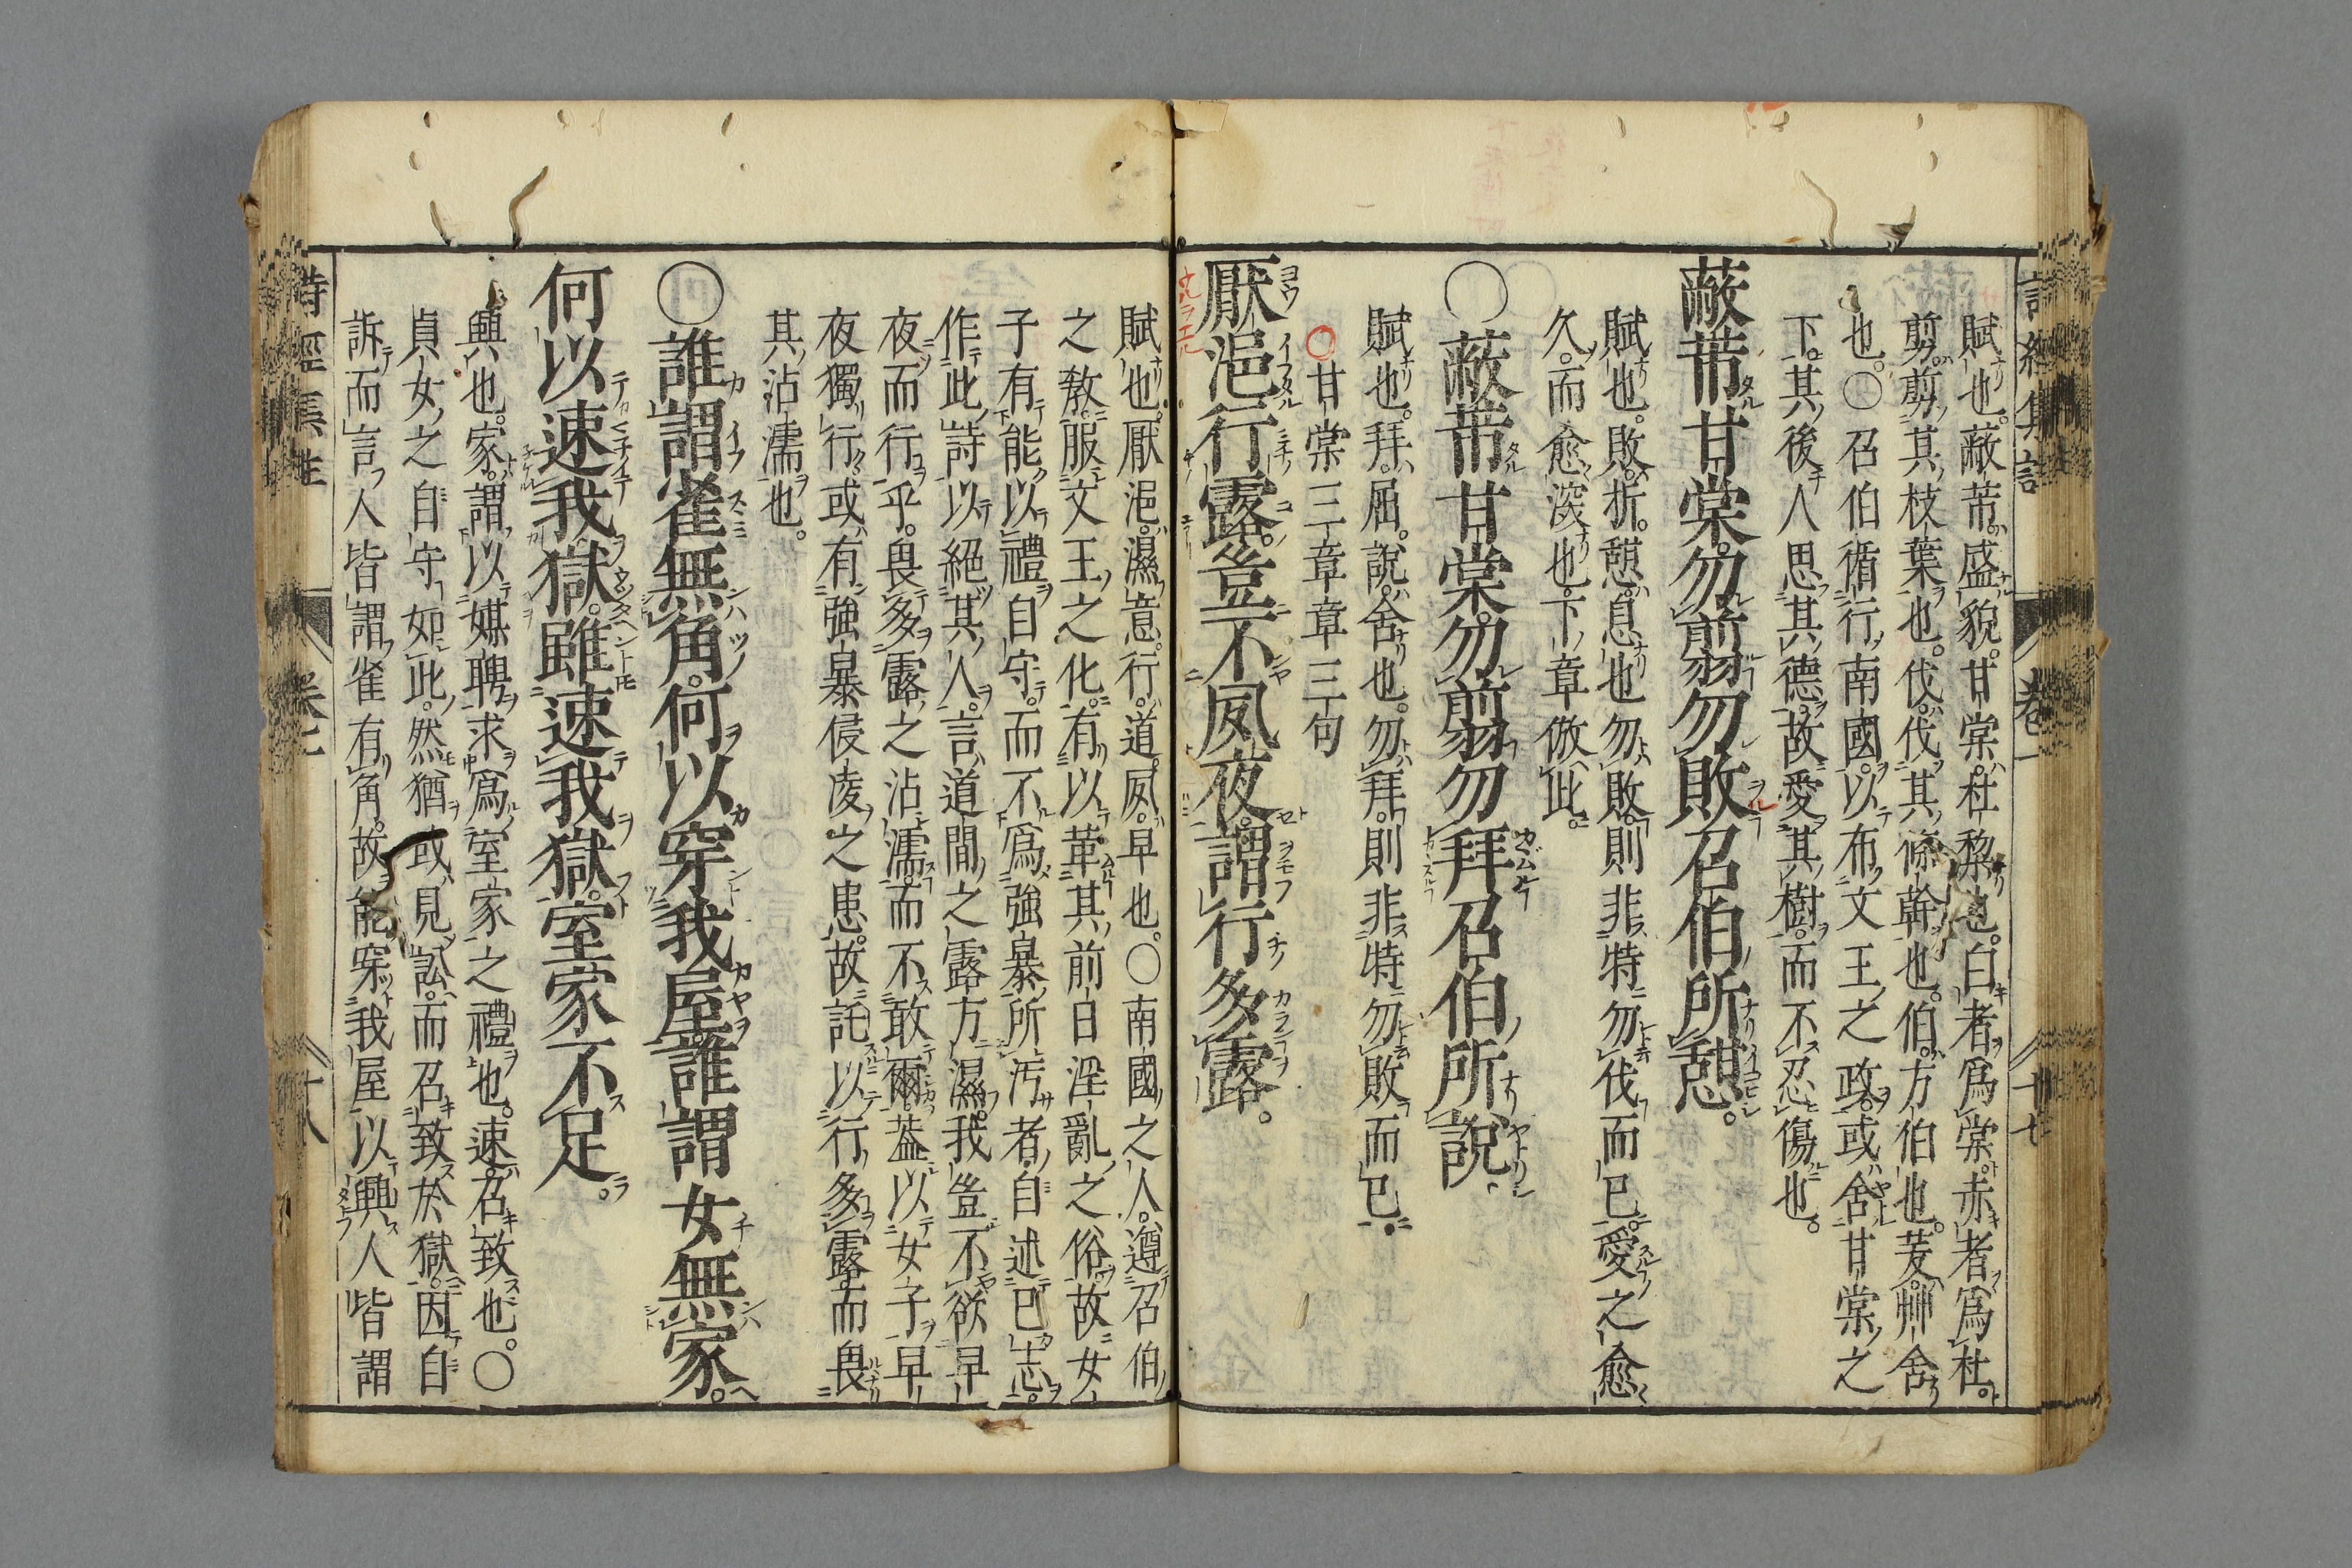 賦也。蔽芾。盛貌。甘棠。杜梨也。白者爲棠。赤者爲杜。
剪。剪其枝葉也。伐。伐其條幹也。伯。方伯也。茇。艸舍
也。○召伯循行南國。以布文王之政。或舍甘棠之
下。其後人思其德。故愛其樹。而不忍傷也。
蔽芾甘棠。勿翦勿敗召伯所憩。
賦也。敗。折。憩。息也勿敗。則非特勿伐而已。愛之愈
久。而愈深也。下章倣此。
○蔽芾甘棠。勿翦勿拜召伯所說
賦也。拜。屈。說。舍也。勿拜。則非特勿敗而已。
○甘棠三章章三句
厭浥行露。豈不夙夜。謂行多露。
賦也。厭浥。濕意。行。道。夙。早也。○南國之人。遵召伯
之敎。服文王之化。有以革其前日淫亂之俗。故女
子有能以禮自守。而不爲強暴所汚者。自述已志。
作此詩以絕其人。言道間之露方濕。我豈不欲早
夜而行乎。畏多露之沾濡。而不敢爾。蓋以女子早
夜獨行。或有強暴侵凌之患。故託以行多露而畏
其沾濡也。
○誰謂雀無角。何以穿我屋誰謂女無家。
何以速我獄。雖速我獄。室家不足。
興也。家。謂以媒聘求爲室家之禮也。速。召致也。○
貞女之自守如此。然猶或見訟。而召致於獄。因自
訴而言。人皆謂雀有角。故能穿我屋。以興人皆謂
詩經集註
卷一
十七
十八